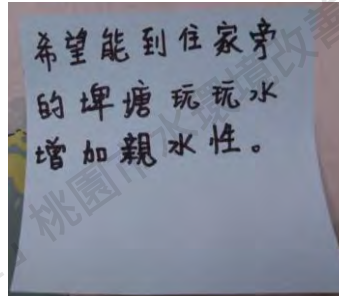 希望能到住家旁
的埤塘玩玩水
增加親水性。